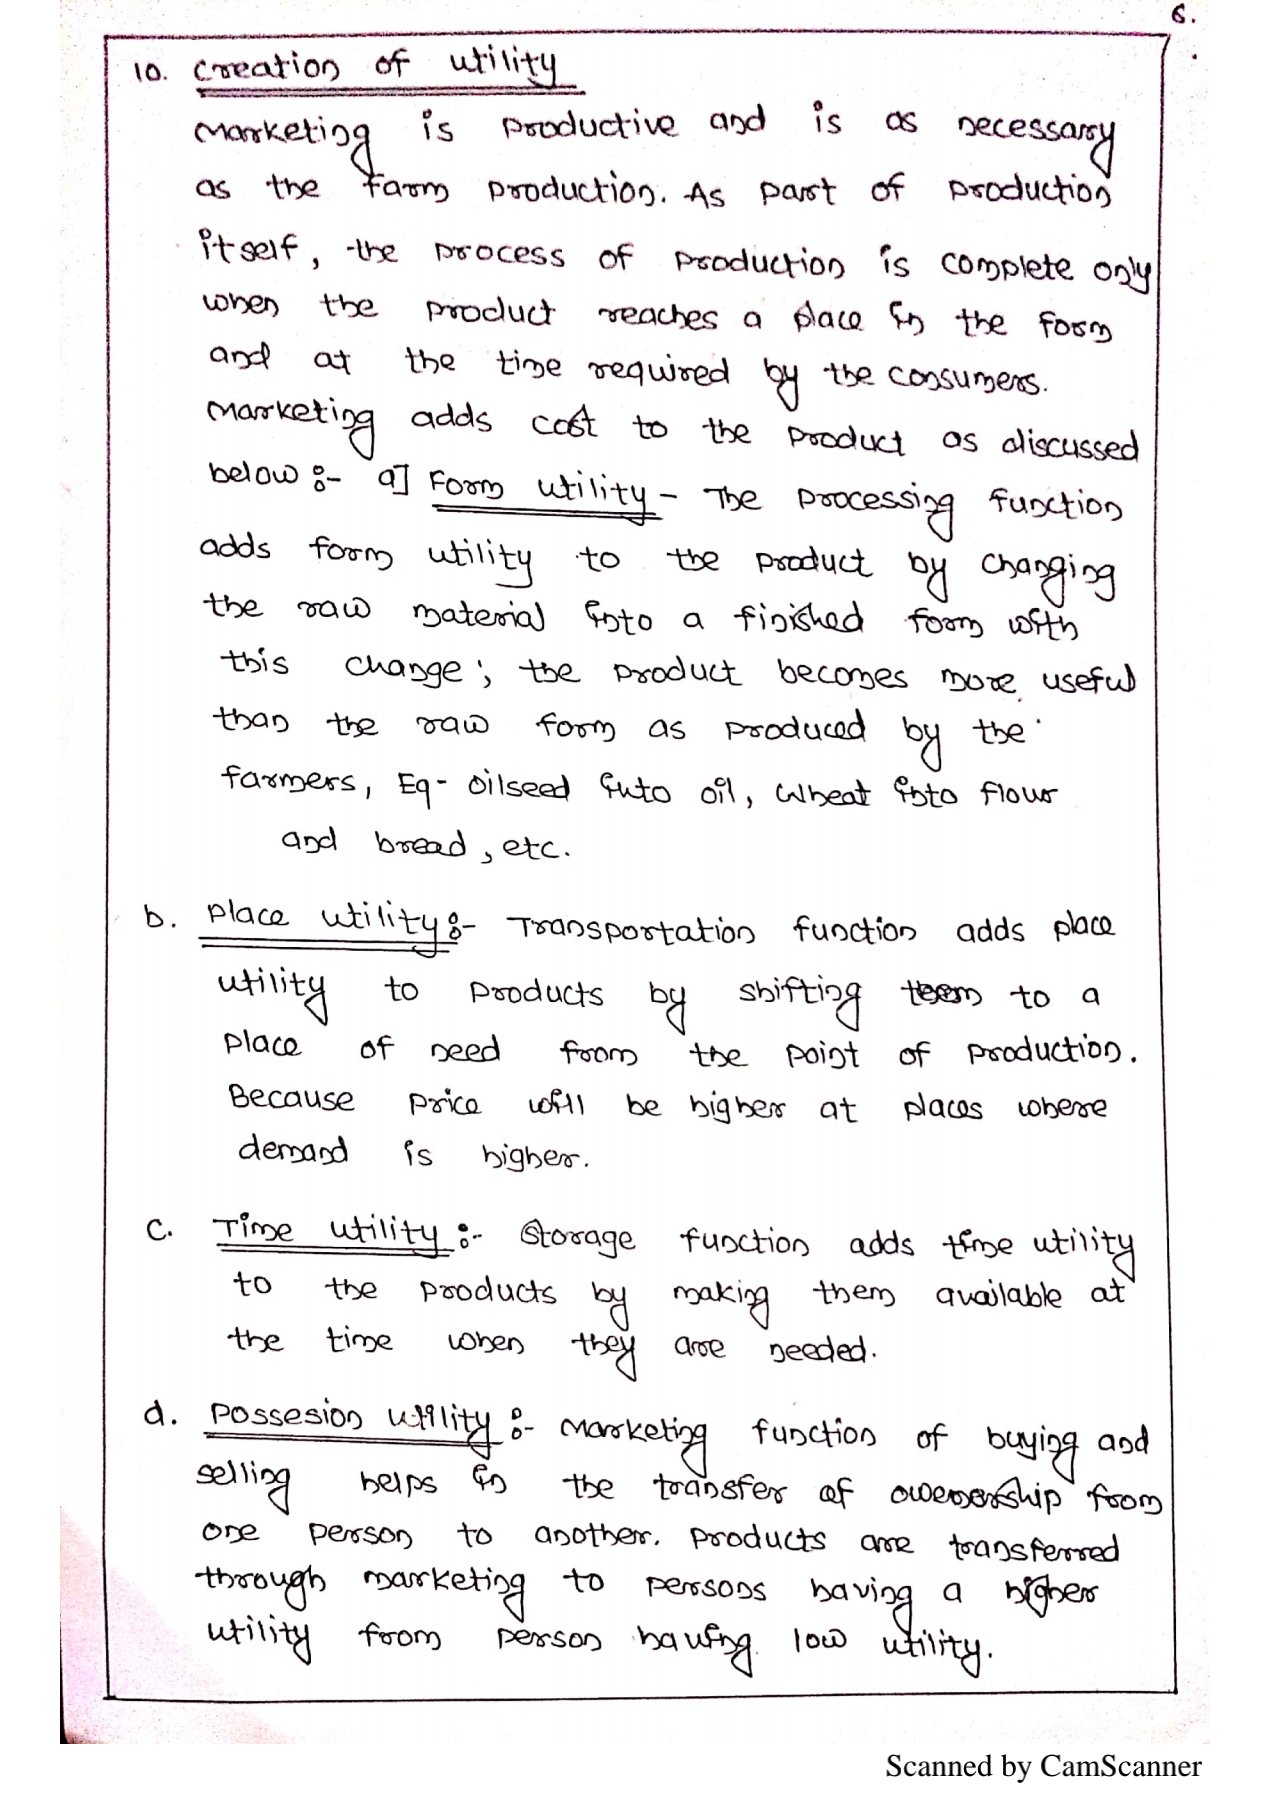 6.
10. Creation of utility
Marketing is productive and is as necessary
as the farm production. As part of production
itself, the process of production is complete only
when the product reaches a place in the form
and at the time required by the consumers.
Marketing adds cost to the product as discussed
below :- a] Form utility - The processing function
adds form utility to the product by changing
the raw material into a finished form with
this change; the product becomes more useful
than the raw form as produced by the
farmers, Eg- oilseed into oil, wheat into flour
and bread, etc.
b. Place utility :- Transportation function adds place
utility to products by shifting them to a
place of need from the point of production.
Because price will be higher at places where
demand is higher.
c. Time utility :- Storage function adds time utility
to the products by making them available at
the time when they are needed.
d. Possesion utility :- Marketing function of buying and
selling helps in the transfer of owenership from
one person to another. Products are transferred
through marketing to persons having a higher
utility from person having low utility.
Scanned by CamScanner